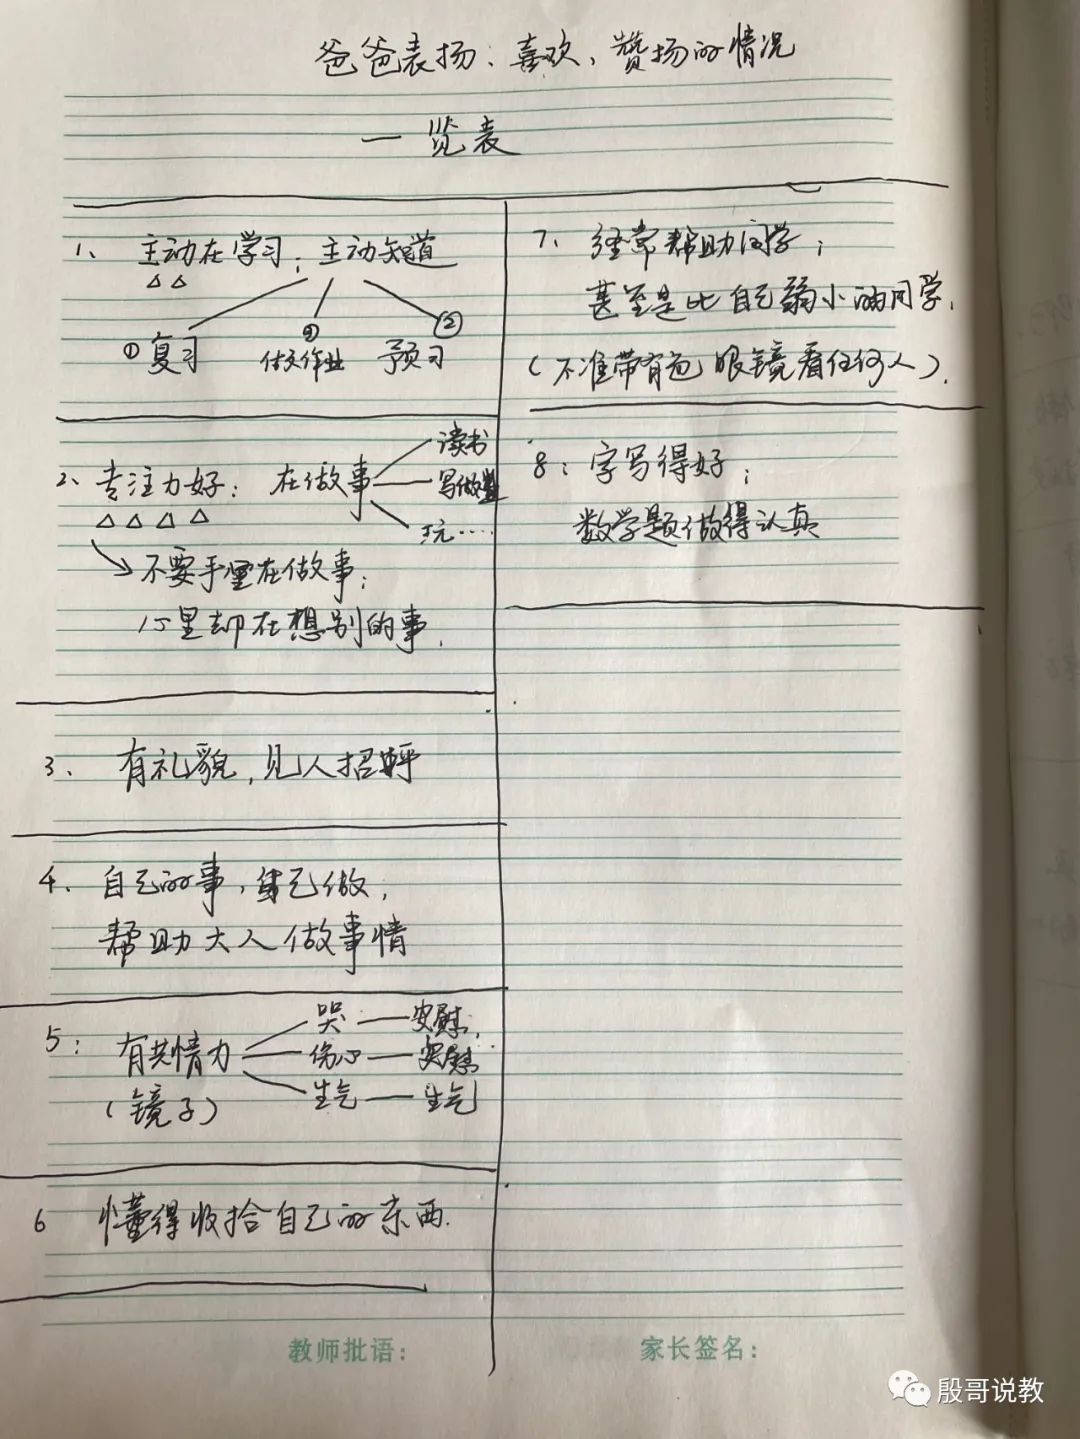 爸爸表扬、喜欢、赞扬的情况
一览表
1、主动在学习；主动知道
①复习
③做作业
②预习
2、专注力好：在做事
读书
写做
玩……
不要手里在做事；
心里却在想别的事.
3、有礼貌，见人招呼
4、自己的事，自己做，
帮助大人做事情
5：有共情力
哭——安慰.
伤心——安慰
生气——生气
（镜子）
6 懂得收拾自己的东西.
7、经常帮助同学；
甚至是比自己弱小的同学.
（不准带有色眼镜看任何人）.
8：字写得好；
数学题做得认真
教师批语：
家长签名：
殷哥说教